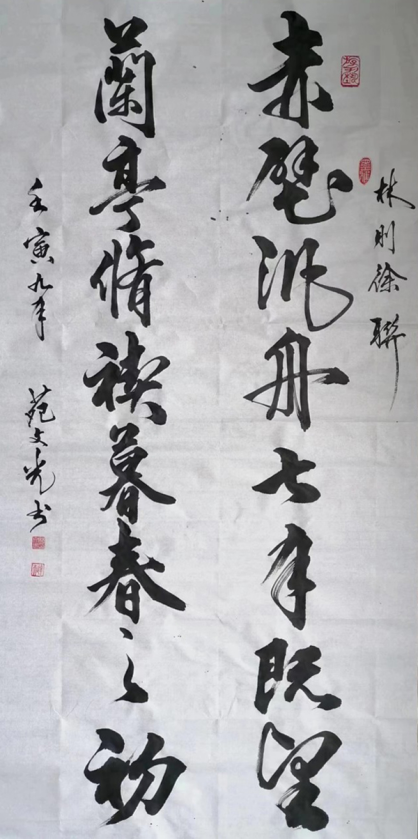 林则徐聯
赤壁汎舟七月既望
蘭亭脩禊暮春之初
壬寅九月 苑文光书